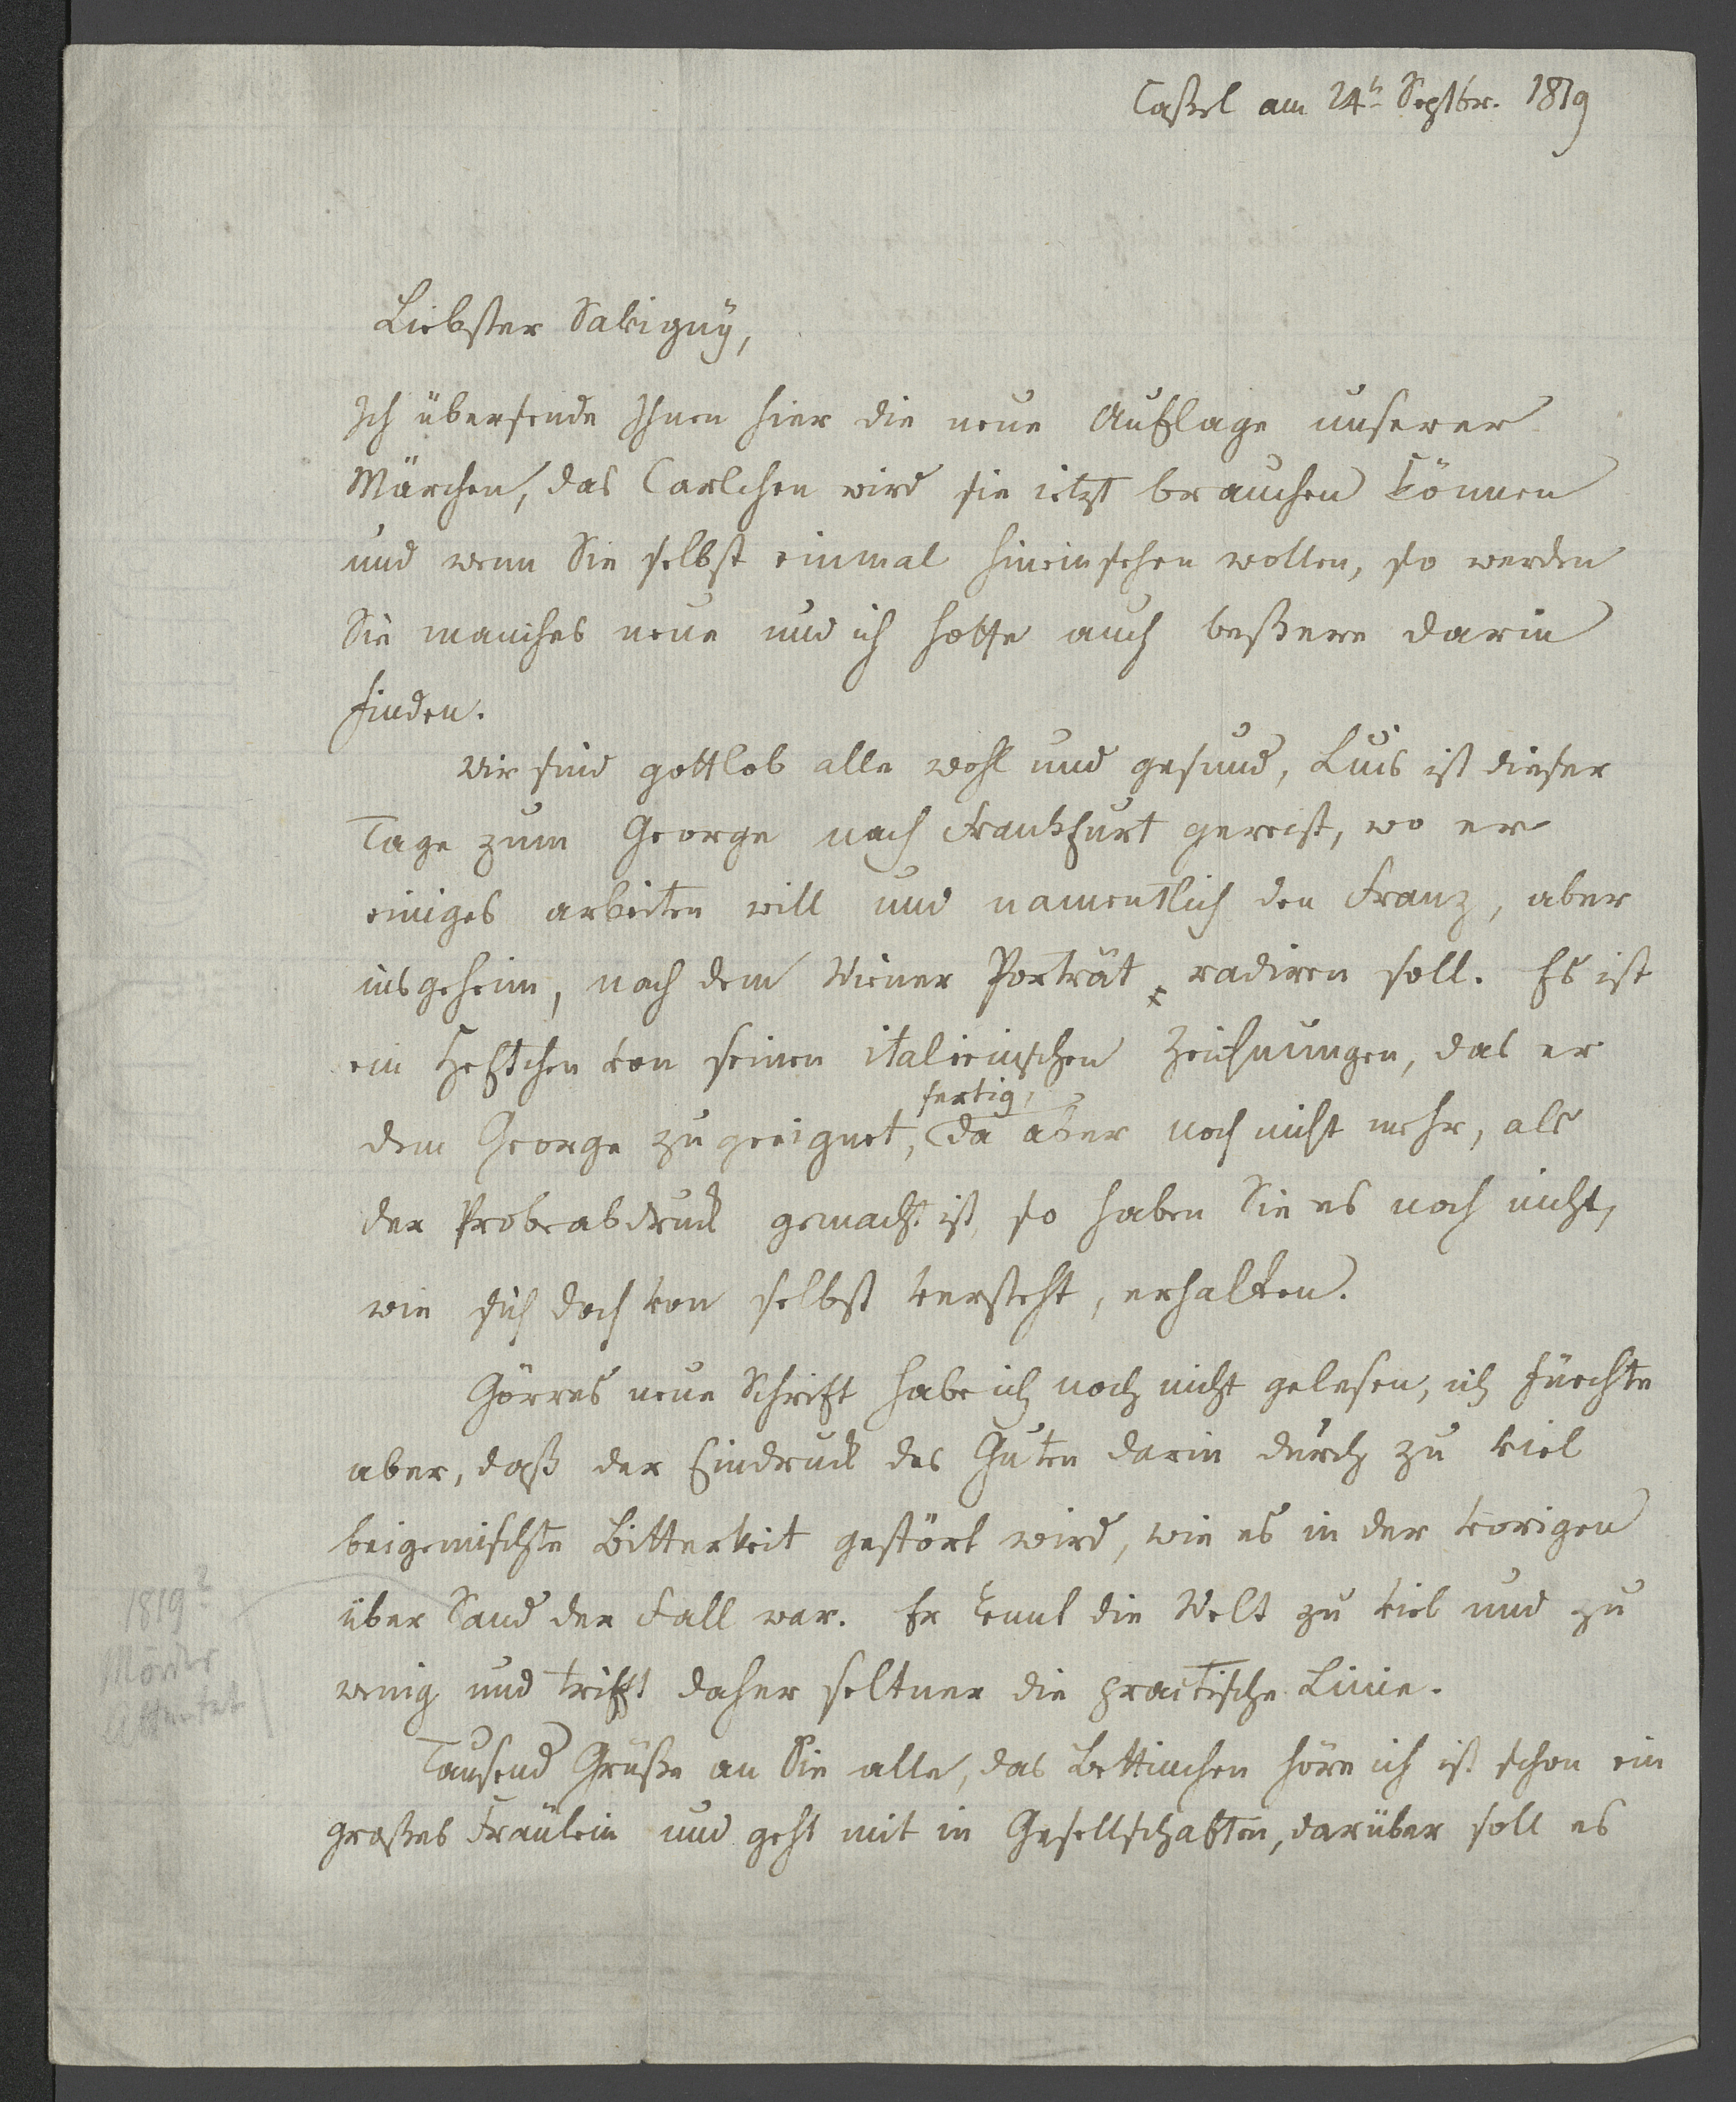 Cassel am 24t Septbr. 1819
Liebster Savigny,
Ich übersende Ihnen hier die neue Auflage unserer
Märchen, das Carlchen wird sie ietzt brauchen können
und wenn Sie selbst einmal hineinsehen wollen, so werden
Sie manches neue und ich hoffe auch beßere darin
finden.
Wir sind gottlob alle wohl und gesund, Luis ist dieser
Tage zum George nach Frankfurt gereist, wo er
einiges arbeiten will und namentlich den Franz, aber
insgeheim, nach dem Wiener Porträt radiren soll. Es ist
ein Heftchen von seinen italienischen Zeichnungen, das er
fertig,
dem George zugeeignet, da aber noch nicht mehr, als
der Probeabdruck gemacht ist, so haben Sie es noch nicht,
wie sich doch von selbst versteht, erhalten.
Görres neue Schrift habe ich noch nicht gelesen, ich fürchte
aber, daß der Eindruck des Guten darin durch zu viel
beigemischte Bitterkeit gestört wird, wie es in der vorigen
über Sand der Fall war. Er kennt die Welt zu viel und zu
wenig und trifft daher seltner die practische Linie.
Tausend Grüße an Sie alle, das Bettinchen höre ich ist schon ein
großes Fräulein und geht mit in Gesellschaften, darüber soll es
1819?
Mörder
Attentat